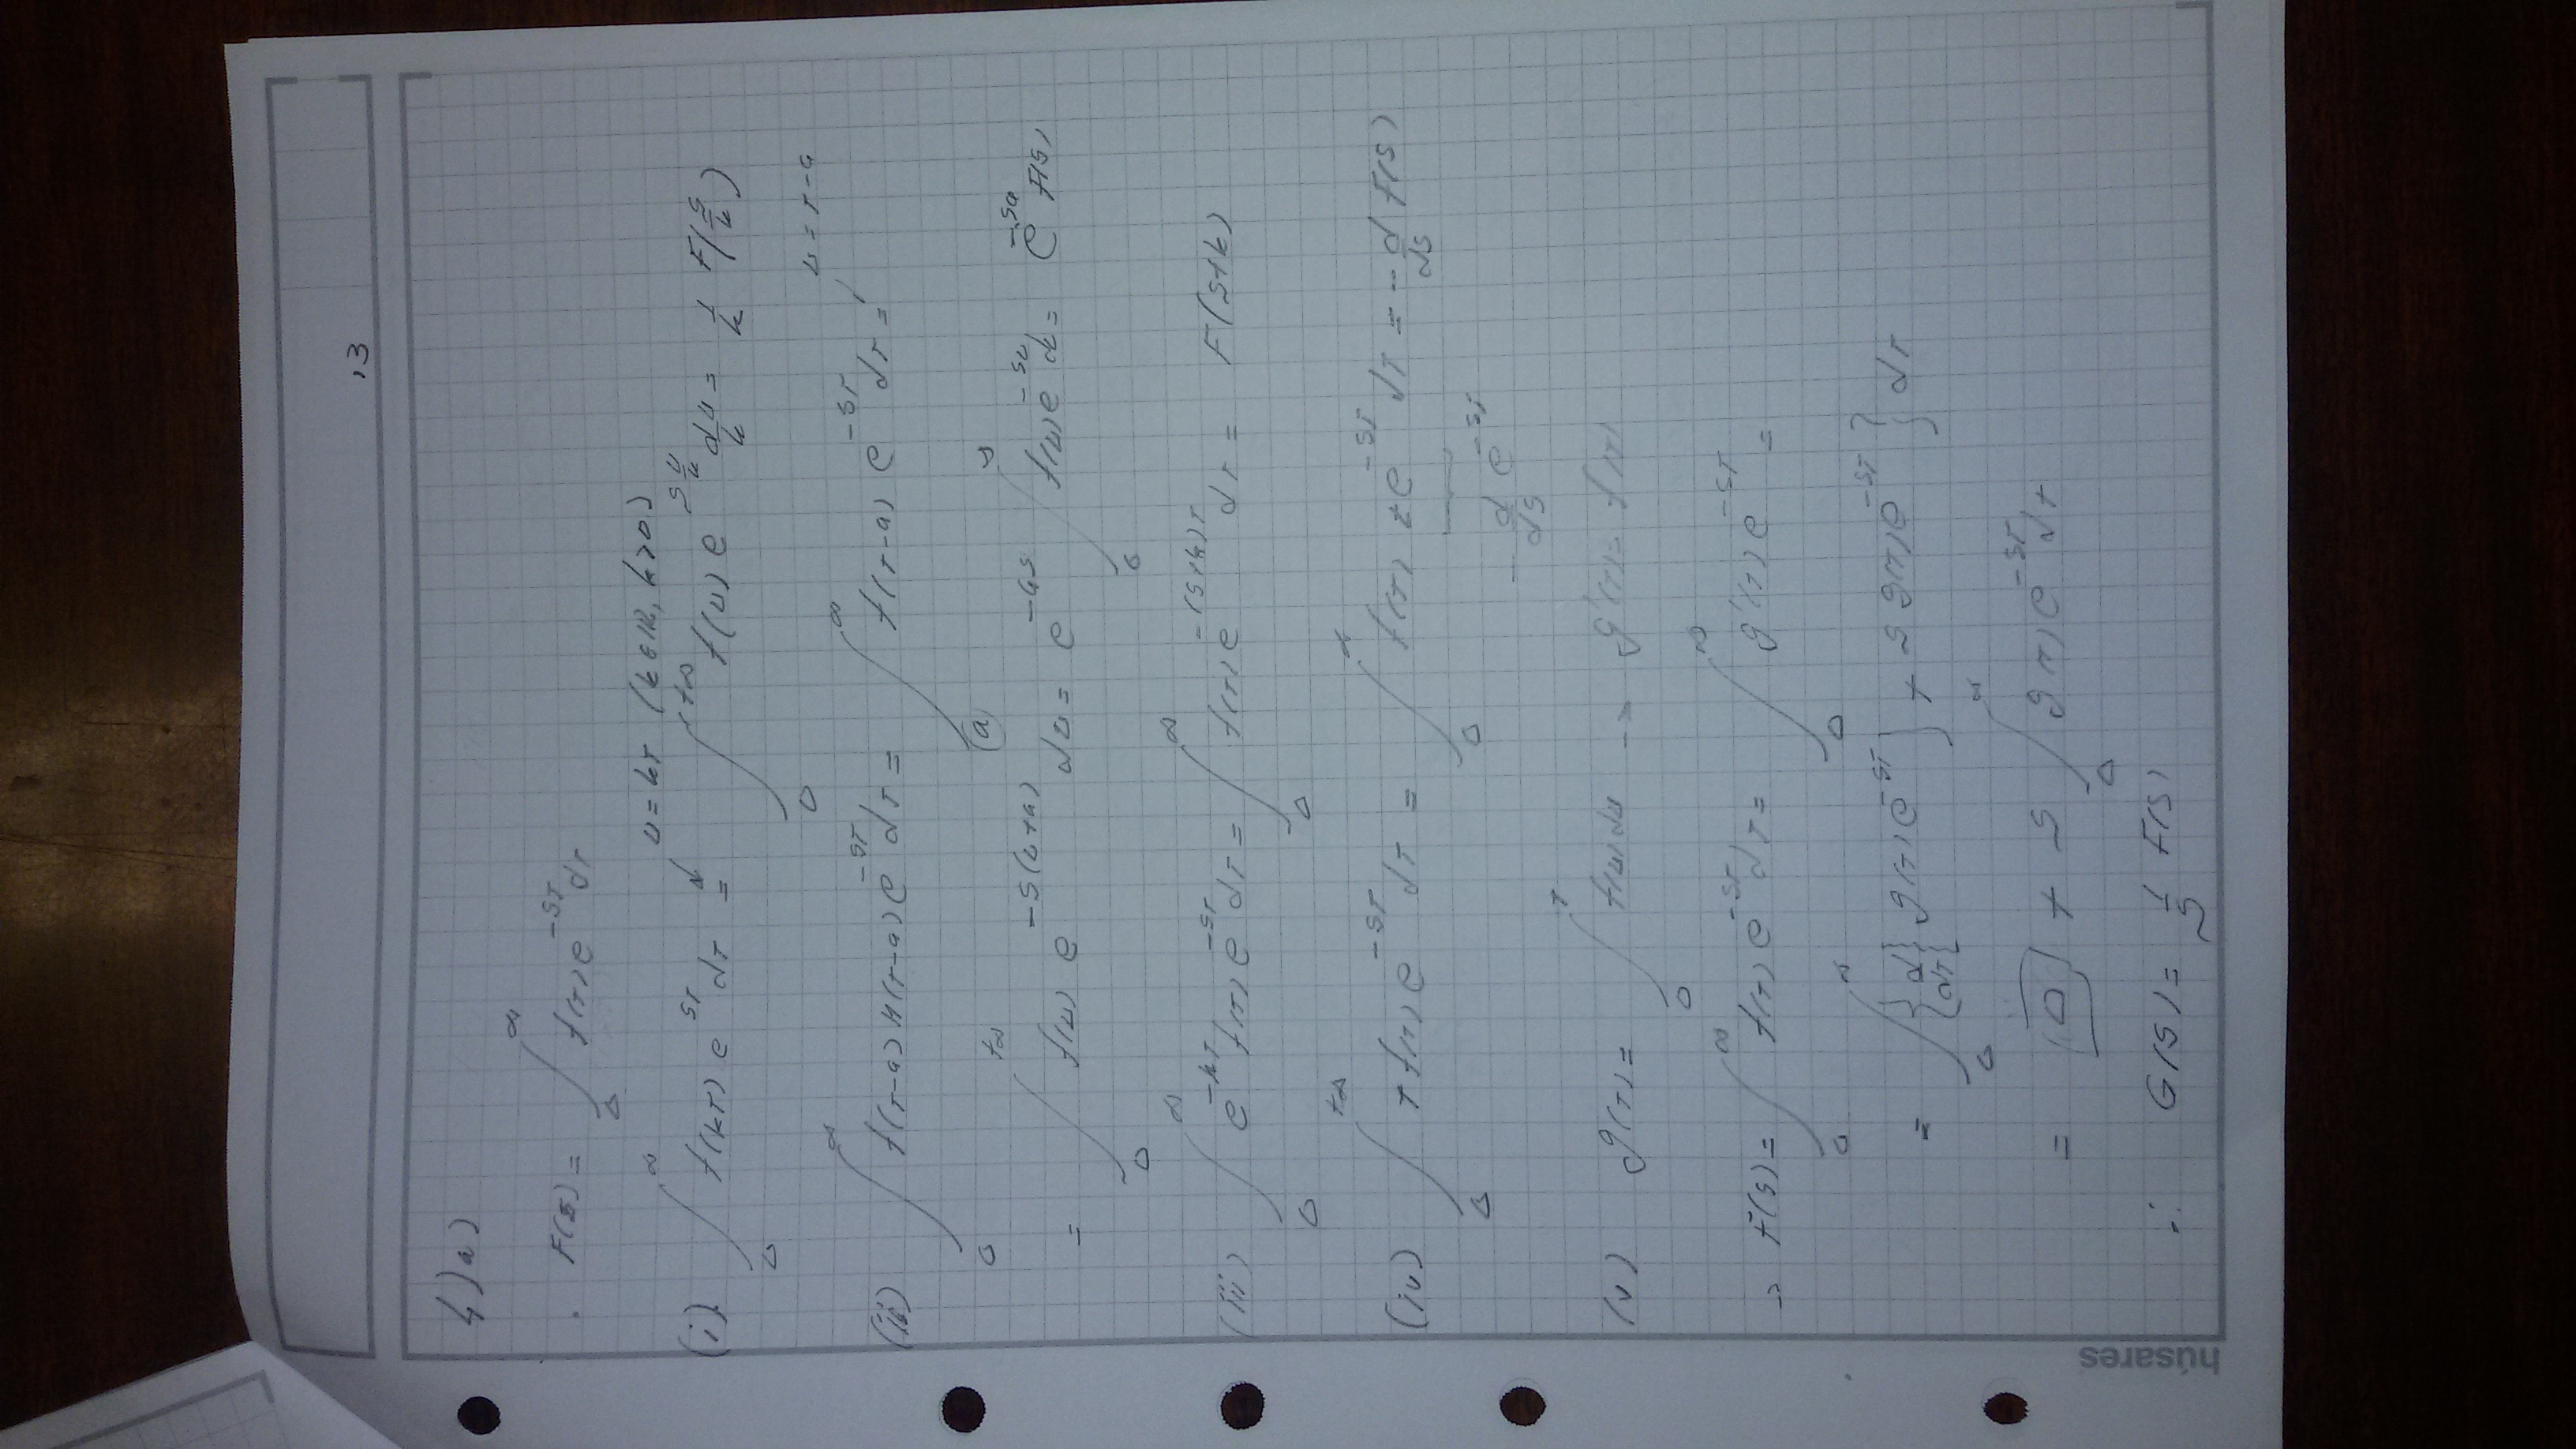 13
4) a)
· F(s) = ∫_0^∞ f(t) e^{-st} dt
u = kt (k ∈ ℝ, k > 0)
(i) ∫_0^∞ f(kt) e^{st} dt = ∫_0^{+∞} f(u) e^{-s u/k} du/k = 1/k F(s/k)
u = t - a
(ii) ∫_0^∞ f(t-a) H(t-a) e^{-st} dt = ∫_a^∞ f(t-a) e^{-st} dt =
= ∫_0^{+∞} f(u) e^{-s(u+a)} du = e^{-as} ∫_0^∞ f(u) e^{-su} du = e^{-sa} F(s)
(iii) ∫_0^∞ e^{-kt} f(t) e^{-st} dt = ∫_0^∞ f(t) e^{-(s+k)t} dt = F(s+k)
(iv) ∫_0^{+∞} t f(t) e^{-st} dt = ∫_0^∞ f(t) t e^{-st} dt = - d/ds F(s)
- d/ds e^{-st}
(v) g(t) = ∫_0^t f(u) du → g'(t) = f(t)
→ F(s) = ∫_0^∞ f(t) e^{-st} dt = ∫_0^∞ g'(t) e^{-st} =
= ∫_0^∞ { d/dt { g(t) e^{-st} } + s g(t) e^{-st} } dt
= [0] + s ∫_0^∞ g(t) e^{-st} dt
∴ G(s) = 1/s F(s)
húsares